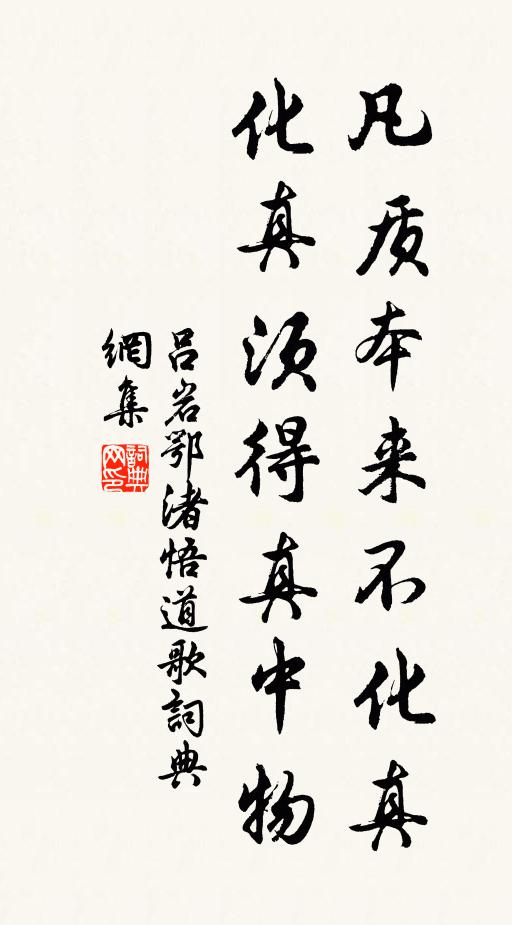 凡质本来不化真
化真须得真中物
吕岩鄂渚悟道歌詞典
網集
詞典
网印